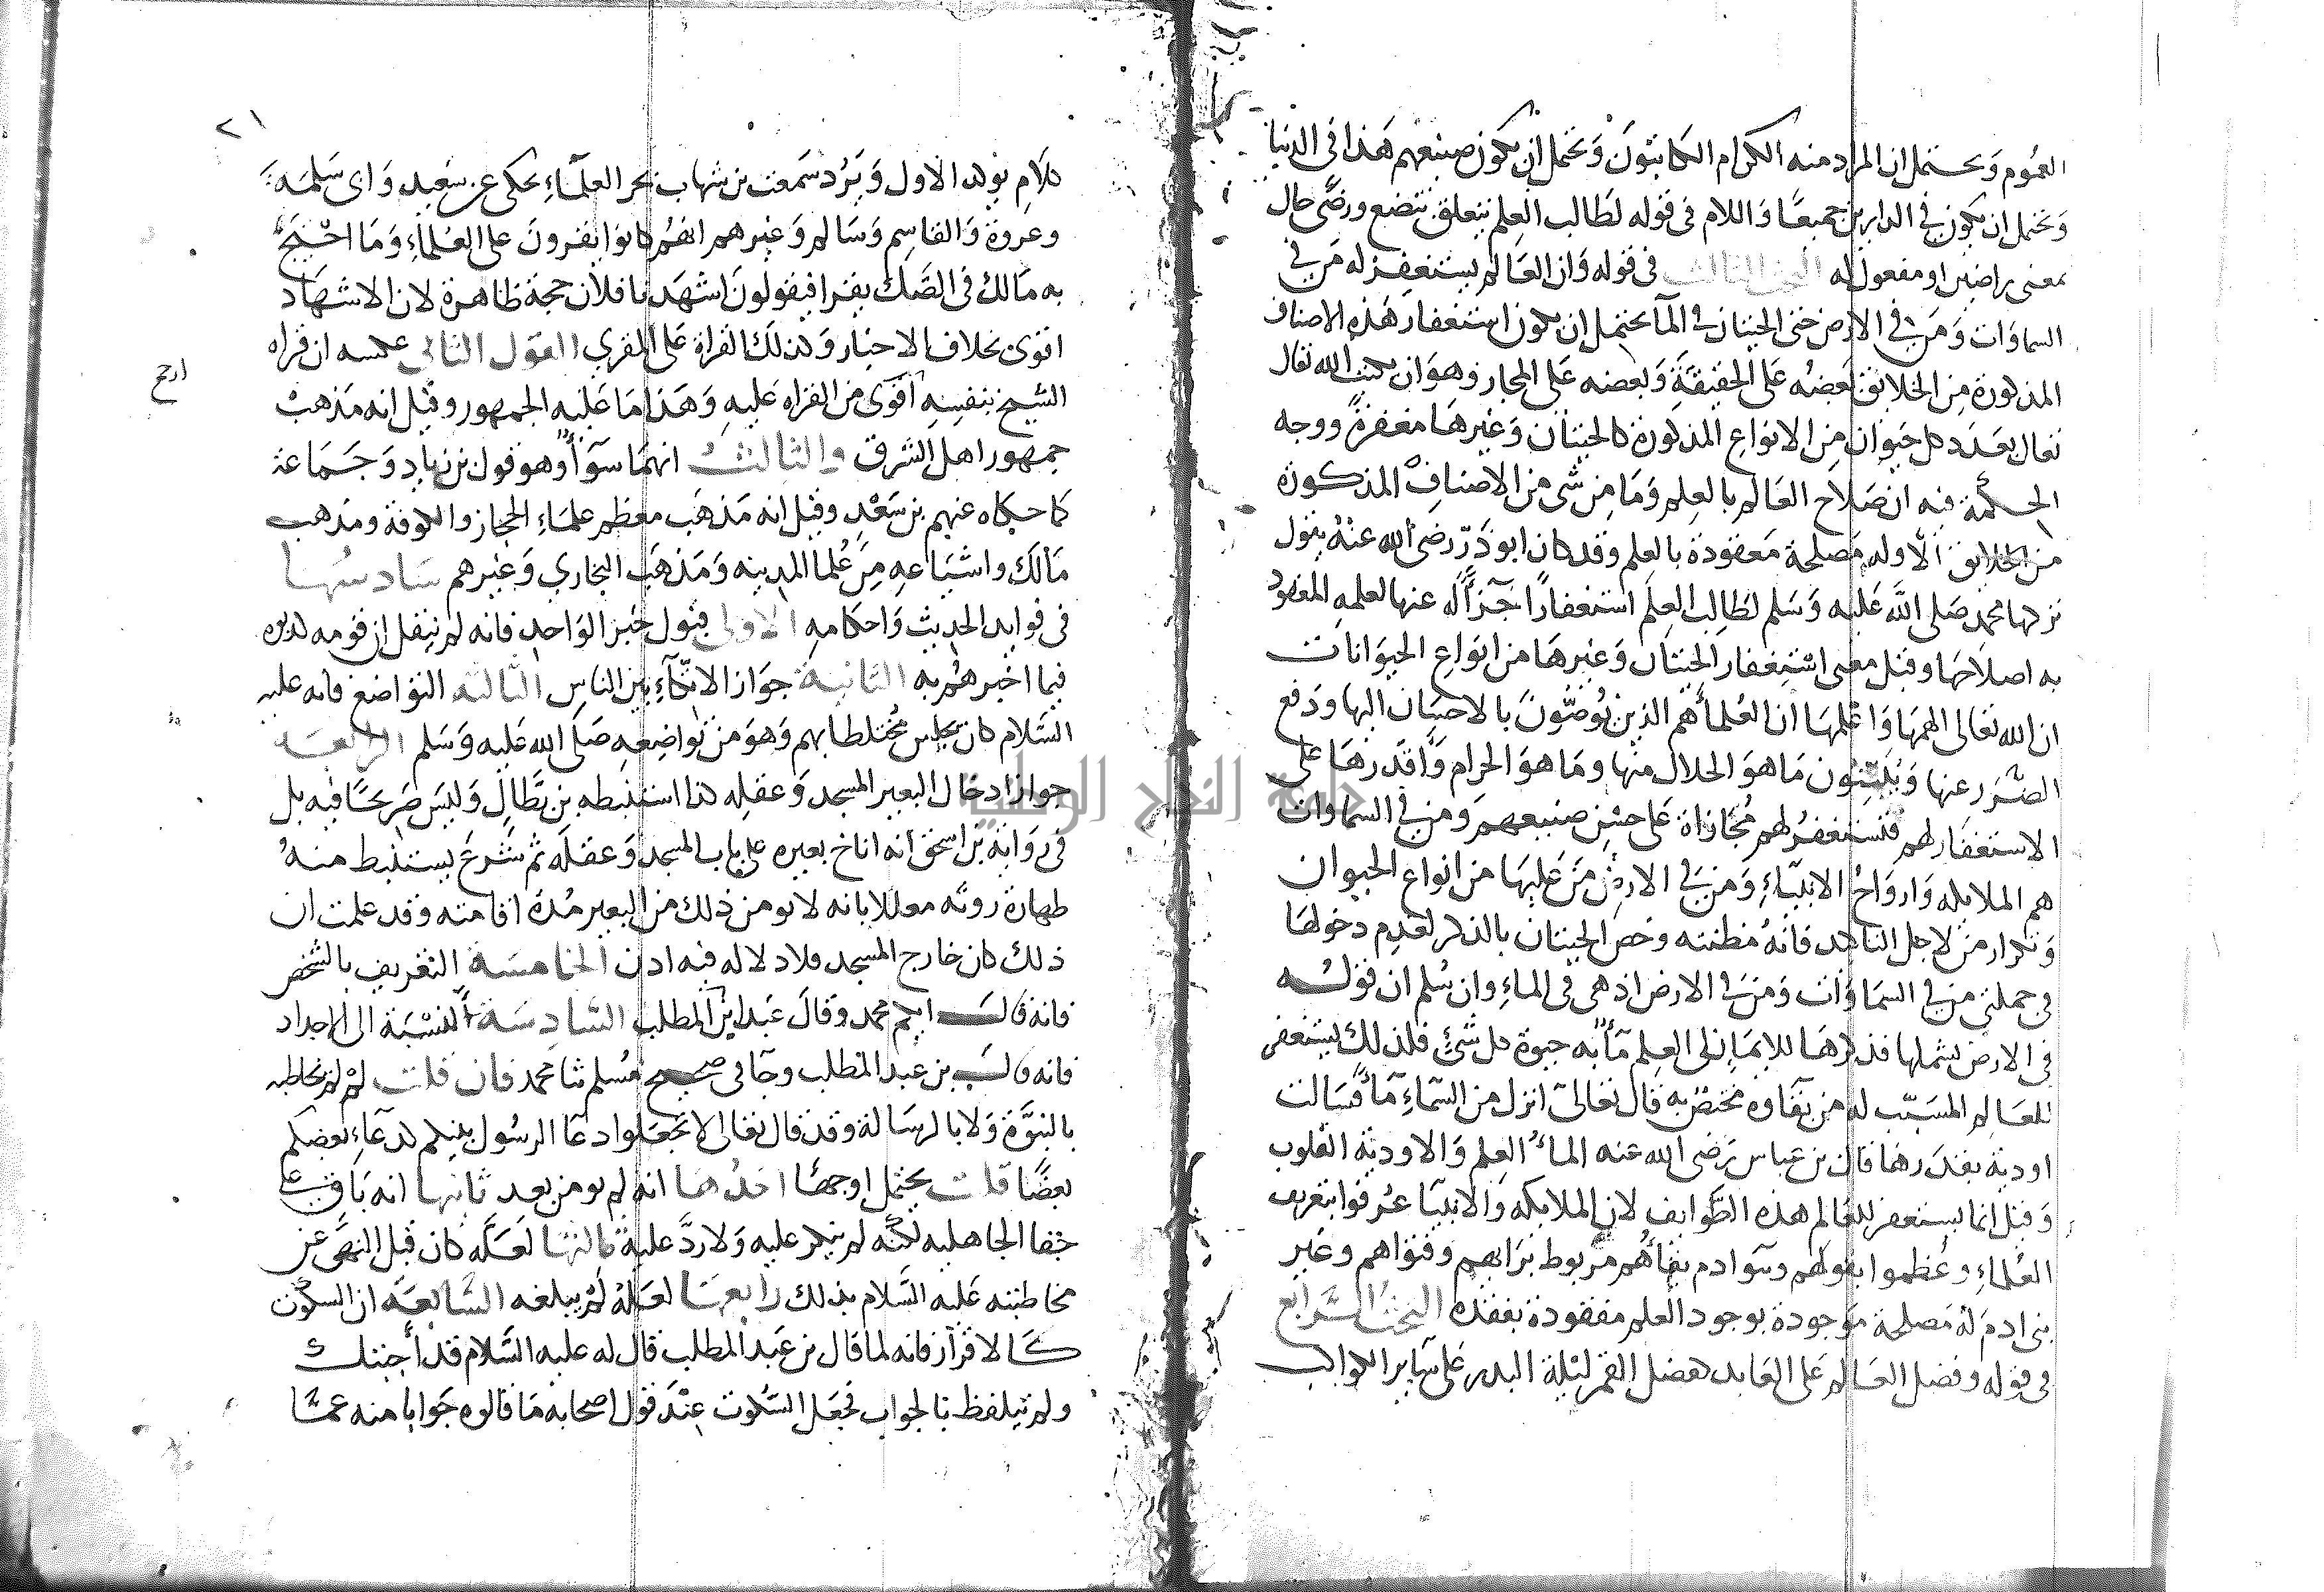 العموم وَيحتمل ان المراد منه الكرام الكاتبون وَيحتمل ان يكون صنيعهم هذا فى الدنيا
وَيحتمل ان يكون في الدارين جميعًا وَاللام فى قوله لطالب العِلم يتعلق بتضع ورضًى حال
بمعنى راضين او مفعول له البحث الثالث فى قوله وَان العَالم يستغفر له مَن في
السماوَات وَمَن في الارض حتى الحيتان في المآ يحتمل ان يكون استغفار هَذه الاصناف
المذكورة مِن الخلايق بَعضُه عَلى الحقيقةِ وَبعضه عَلى المجاز وهوَ ان يكتب الله تعالى
تعالى بعَدَد كل حيَوان مِن الانوَاع المذكورة كالحيتان وَغيرهَا مغفرةً ووجه
الحكمة فيه ان صَلاح العَالم بالعِلم وَمَا مِن شى من الاصنافِ المذكورة
من الخلايق الا وله مَصلحة مَعقودة بالعلم وقد كان ابو ذَرّ رضى الله عنهُ يقول
تركها محمد صَلى الله عَليه وَسَلم لطَالِب العِلم استغفارًا جَزآءً له عنها لعلمهِ المعقود
به اصلاحها وقيل معنى استغفار الحيتان وَغيرهَا من انوَاع الحيوَانات
ان الله تعَالى الهمهَا وَاعلمهَا ان العُلماءَ هم الذين يُوصُّونَ بالاحسَان اليها وَدفع
الضَّرَر عنها وَيُبَيّنون مَا هوَ الحلال منها ومَا هوَ الحرام وَاقدَرهَا على
الاستغفار لهم فتستغفرُ لهم مُجَازاة عَلى حسْن صنيعهم وَمن في السماوات
هم الملايكه وَاروَاحُ الانبيَاءِ وَمن في الارض مَن عَليهَا من انواع الحيوان
وَتكرار مَن لاجل التاكد فانهُ مظنته وخص الحيتان بالذكر لعَدم دخولهَا
في جملتي من في السمَاوَات وَمَن في الارض اذ هى فى الماءِ وان سُلم ان قولـه
فى الارض يشملها فذكرهَا للايمَا الى العِلم مَآءً به حيوة كل شَئٍ فلذلك يستغفر
للعَالم المسَبّب له من بقآوه مختصٌ به قال تعَالىَ انزل من السّمآءِ مَآءً فسَالت
اودية بقدَرها قال بن عباس رَضى الله عنه الماءُ العِلم وَالاودية القلوب
وَقيل انما يستغفر للعَالم هذه الطوَايف لان الملايكه وَالانبيَا عُرفوا بتعريف
العُلماءِ وعُظموا بقولهم وبَنوا ادم بقاؤهُم مَربوط برَايهم وفتوَاهم وَغير
بنى ادم لهُ مَصلحة مَوجودة بوجود العلم مفقودة بفقده البحثُ الـرَابع
فى قوله وفضل العَالم عَلى العَابد كفضل القمر ليلة البدر عَلى سَاير الكواكب
٢١
كلام يويد الاول وَيَرُد سَمعت بن شهاب بحر العلمَآءِ يحكى عن سَعيد وَاى سَلمَه
وعروة وَالقاسِم وَسَالم وَغيرهم انهُم كانوا يقرونَ على العُلماءِ وَمَا احْتج
به مَالك فى الصَّك يقرا فيقولون اشهَدنا فلان حجة ظاهرة لان الاشهاد
اقوى بخلاف الاخبَار وَلذلك القراة عَلى المقري القول الثانى عكسه ان قراه
ارجح
الشيخ بنفسِهِ اقوَى من القراه عَليه وَهَذا مَا عَليه الجمهور وقيل انه مَذهبُ
جمهور اهل الشرق والثالث انهمَا سَوآءٌ وهو قول بن زياد وَجَمَاعة
كما حكاه عنهم بن سَعْدٍ وقيل انه مَذهَب معظم علمَاءِ الحجاز والكوفة ومذهب
مَالك واشيَاعهِ مِن عُلما المدينه وَمَذهَب البخاري وَغيرهم سَادسُهَا
فى فوايد الحَديث وَاحكامهِ الاولى قبُول خبَر الوَاحد فانه لم ينقل ان قومه كذبوه
فيما اخبرهُم به الثانية جوَاز الاتكآءِ بين الناس الثالثة التواضع فانه عليه
السَّلام كان يجلس مُختلطا بهم وَهوَ من توَاضعهِ صَلى الله عَليه وَسَلم الرابعَـة
جواز ادخال البعير المسجد وَعقلِه كذا استنبطه بن بَطالٍ وَليسَ صَريحًا فيه بل
فى رِوَاية بن اسحَق انه اناخ بعيره على باب المسجد وَعقلَه ثم شَرعَ يستنبط منهُ
طهارة روثه معللا بانه لا يومن ذلك من البعير مُدة اقامته وقد علمت ان
ذلك كان خارج المسجد فلا دلاله فيه اذن الخامسَة التعريف بالشخص
فانه قالـ ايكم محمد وقالَ عَبد ابن المطلب السَّادسَة النسْبَة الى الاجداد
فانه قالـ بن عبد المطلب وجَآ فى صحيح مُسلم ثنا محمد فان قلت لمْ لمْ يخاطبه
بالنبوَّة وَلا بالرسَالة وقد قال تعَالى لا تجعَلوا دعَا الرسُول بينكم كدعَآءِ بَعضكم
بَعضًا قلت يحتمل اوجهًا احَدُهَا انه لم يومن بعد ثانيها انه بَاقٍ على
جفا الجاهليه لكنّه لم ينكر عليه وَلا رَدَّ عليهِ ثالثهَا لعَلّه كان قبل النهى عَن
مخاطبته عَليه السَّلام بذلك رَابعهَا لعَلهُ لمْ يبلغه السَّابعَه ان السكوت
كَـالاقرَار فانه لما قال بن عَبد المطلب قال له عليه السَّلام قد أَجبتك
ولم يتلفظ بالجواب فجَعل السّكوت عِنْدَ قول اصحابه مَا قالوه جَوابا منه عمّا